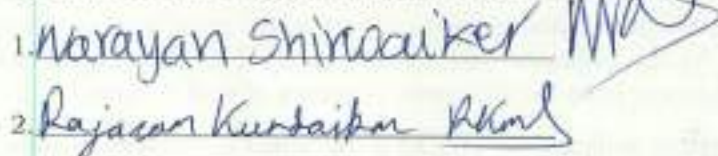 1. Narayan Shirodiker
2. Rajaram Kundaikar